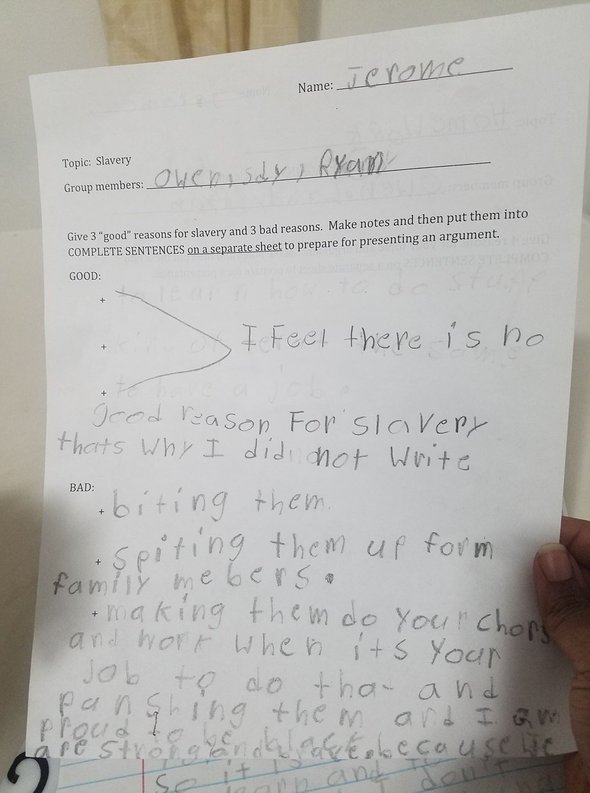 Name: Jerome
Topic: Slavery
Group members: Owen, sdy, Ryan
Give 3 "good" reasons for slavery and 3 bad reasons. Make notes and then put them into
COMPLETE SENTENCES on a separate sheet to prepare for presenting an argument.
GOOD:
+
+ I feel there is no
+
good reason For slavery
thats why I did not write
BAD:
+ biting them.
+ spiting them up form
family mebers.
+ making them do your chors
and work when its your
Job to do tha- and
panshing them and I am
proud to be black because we
are strong and brave
so it
and I don't